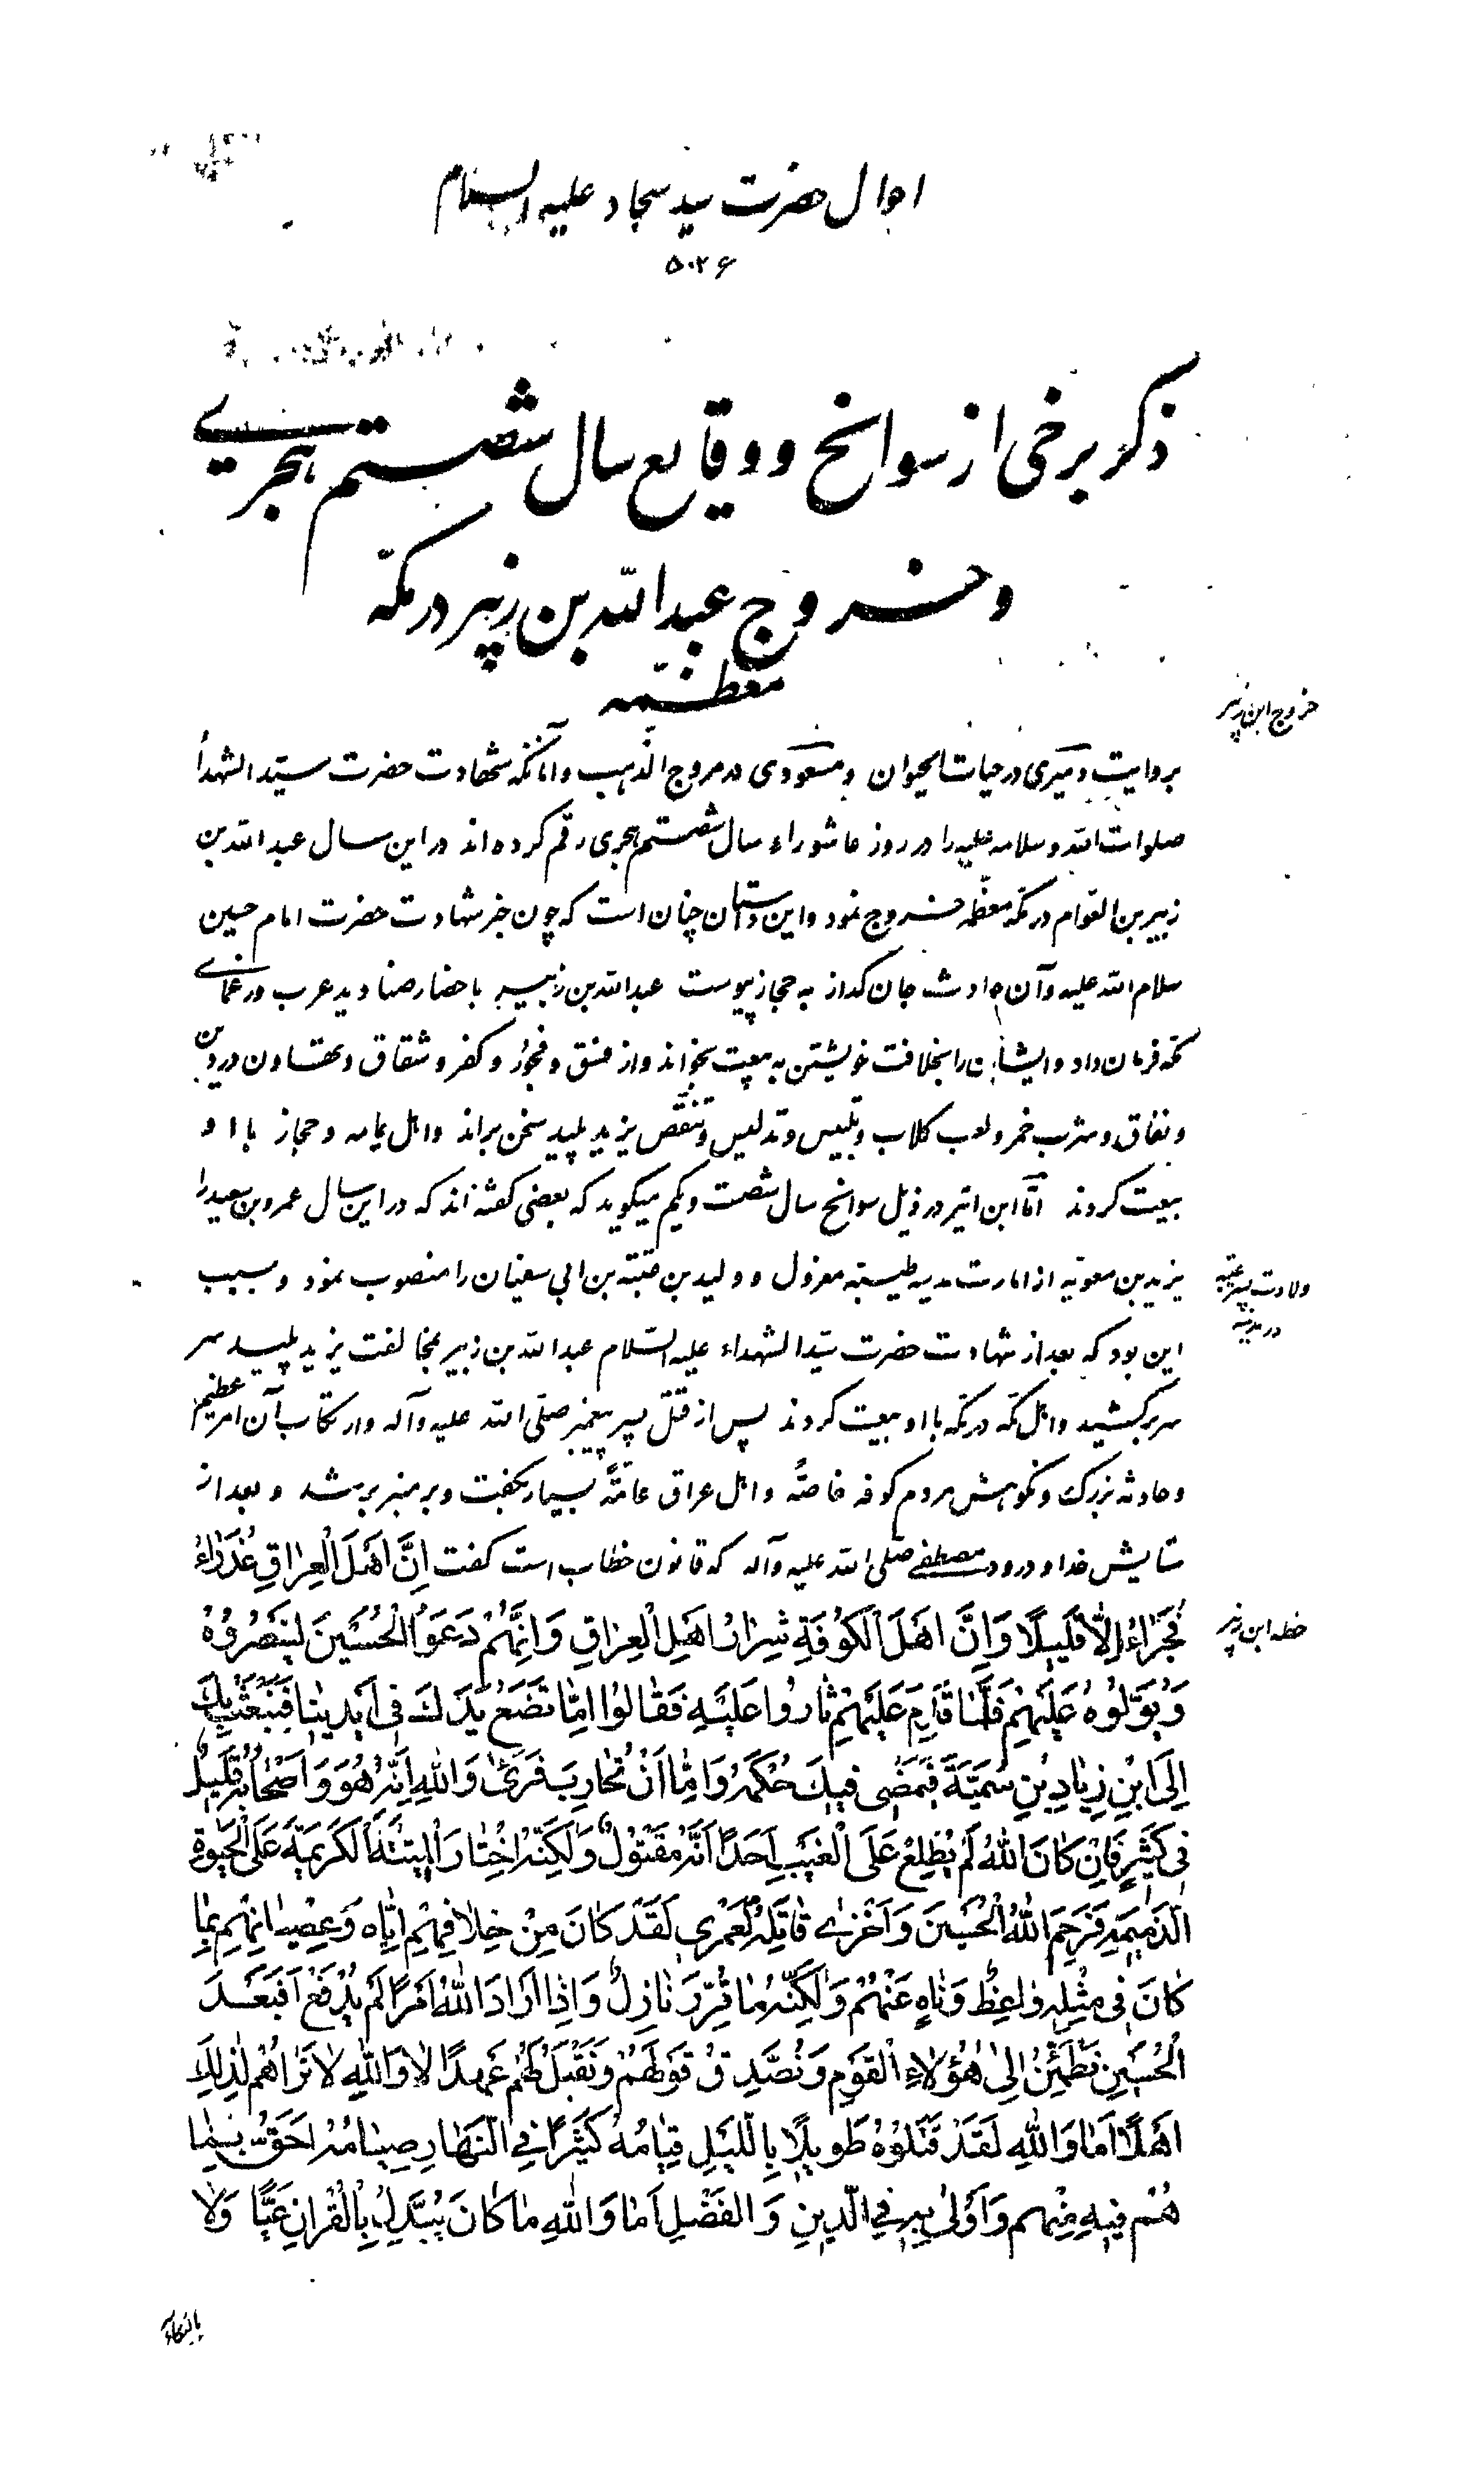 احوال حضرت سید سجاد علیه السلام
۵۰۲۶
ذکر برخی از سوانح و وقایع سال شصتم هجری
و خروج عبدالله بن زبیر در مکّه
معظّمه
خروج ابن زبیر
بروایت دمیری در حیات الحیوان و مسعودی در مروج الذّهب و آنانکه شهادت حضرت سیّد الشهدأ
صلوات الله و سلامه علیه را در روز عاشوراء سال شصتم هجری رقم کرده‌اند در این سال عبدالله بن
زبیر بن العوام در مکّه معظّمه خروج نمود و این داستان چنان است که چون خبر شهادت حضرت امام حسین
سلام الله علیه و آن حادث جان کداز به حجاز پیوست عبدالله بن زبیر باحضار صنادید عرب و رعمای
مکّه فرمان داد و ایشان را بخلافت خویشتن به بیعت بخواند و از فسق و فجور و کفر و شقاق و تهاون در دین
و نفاق و شرب خمر و لعب کلاب و تلبیس و تدلیس و تنقّص یزید پلید سخن براند و اهل یمامه و حجاز با او
بیعت کردند امّا ابن اثیر در ذیل سوانح سال شصت و یکم میکوید که بعضی کفته‌اند که در این سال عمرو بن سعید را
یزید بن معویه از امارت مدینه طیبه معزول و ولید بن عتبة بن ابی سفیان را منصوب نمود و سبب
ولادت پسر عتبه
در مدینه
این بود که بعد از شهادت حضرت سیّد الشهداء علیه السّلام عبدالله بن زبیر بمخالفت یزید پلید سر
سر برکشید و اهل مکّه در مکّه با او بیعت کردند پس از قتل پسر پیغمبر صلّی الله علیه و آله و ارتکاب آن امر عظیم
و حادثه بزرک و نکوهش مردم کوفه خاصّةً و اهل عراق عامّةً بسیار بکفت و بر منبر بر شد و بعد از
ستایش خدا و درود مصطفی صلّی الله علیه و آله که قانون خطاب است کفت اِنَّ اَهْلَ الْعِرٰاقِ غُدَرٰاءُ
فُجَرٰاءُ اِلّٰا قَلیلًا وَاِنَّ اَهْلَ الْکُوفَةِ شِرٰارُ اَهْلِ الْعِرٰاقِ وَاِنَّهُمْ دَعَوُا الْحُسَیْنَ لِیَنْصُرُوهُ
خطبه ابن زبیر
وَیُوَلّوُهُ عَلَیْهِمْ فَلَمّٰا قَدِمَ عَلَیْهِمْ ثٰارُوا عَلَیْهِ فَقٰالُوا اِمّٰا تَضَعُ یَدَكَ فی اَیْدینٰا فَنَبْعَثُ بِكَ
اِلَی ابْنِ زِیٰادِ بْنِ سُمَیَّةَ فَیَمْضی فیكَ حُکْمَهُ وَاِمّٰا اَنْ تُحٰارِبَ فَرَئٰ وَاللهِ اِنَّهُ هُوَ وَاَصْحٰابُهُ قَلیلٌ
فی کَثیرٍ فَاِنْ کٰانَ اللهُ لَمْ یُطْلِعْ عَلَی الْغَیْبِ اَحَدًا اَنَّهُ مَقْتُولٌ وَلٰکِنَّهُ اخْتٰارَ الْمیتَةَ الْکَریمَةَ عَلَی الْحَیوةِ
الذَّمیمَةِ فَرَحِمَ اللهُ الْحُسَیْنَ وَاَخْزیٰ قٰاتِلَهُ لَعَمْری لَقَدْ کٰانَ مِنْ خِلٰافِهِمْ اِیّٰاه وَعِصْیٰانِهِمْ بِمٰا
کٰانَ فی مِثْلِهِ وٰاعِظٌ وَنٰاهٍ عَنْهُمْ وَلٰکِنَّهُ مٰا قُرِّرَ نٰازِلٌ وَاِذٰا اَرٰادَ اللهُ اَمْرًا لَمْ یُدْفَعْ اَفَبَعْدَ
الْحُسَیْنِ نَطْمَئِنُّ اِلیٰ هٰؤُلٰاءِ الْقَوْمِ وَنُصَدِّقُ قَوْلَهُمْ وَنَقْبَلُ لَهُمْ عَهْدًا لٰا وَاللهِ لٰا نَرٰاهُمْ لِذٰلِكَ
اَهْلًا اَمٰا وَاللهِ لَقَدْ قَتَلُوهُ طَویلًا بِاللَّیْلِ قِیٰامُهُ کَثیرًا فِی النَّهٰارِ صِیٰامُهُ اَحَقُّ بِمٰا
هُمْ فیهِ مِنْهُم وَاَوْلیٰ بِهِ فِی الدّینِ وَالْفَضْلِ اَمٰا وَاللهِ مٰا کٰانَ یُبَدِّلُ بِالْقُرْانِ غَیًّا وَلٰا
بالبکاء